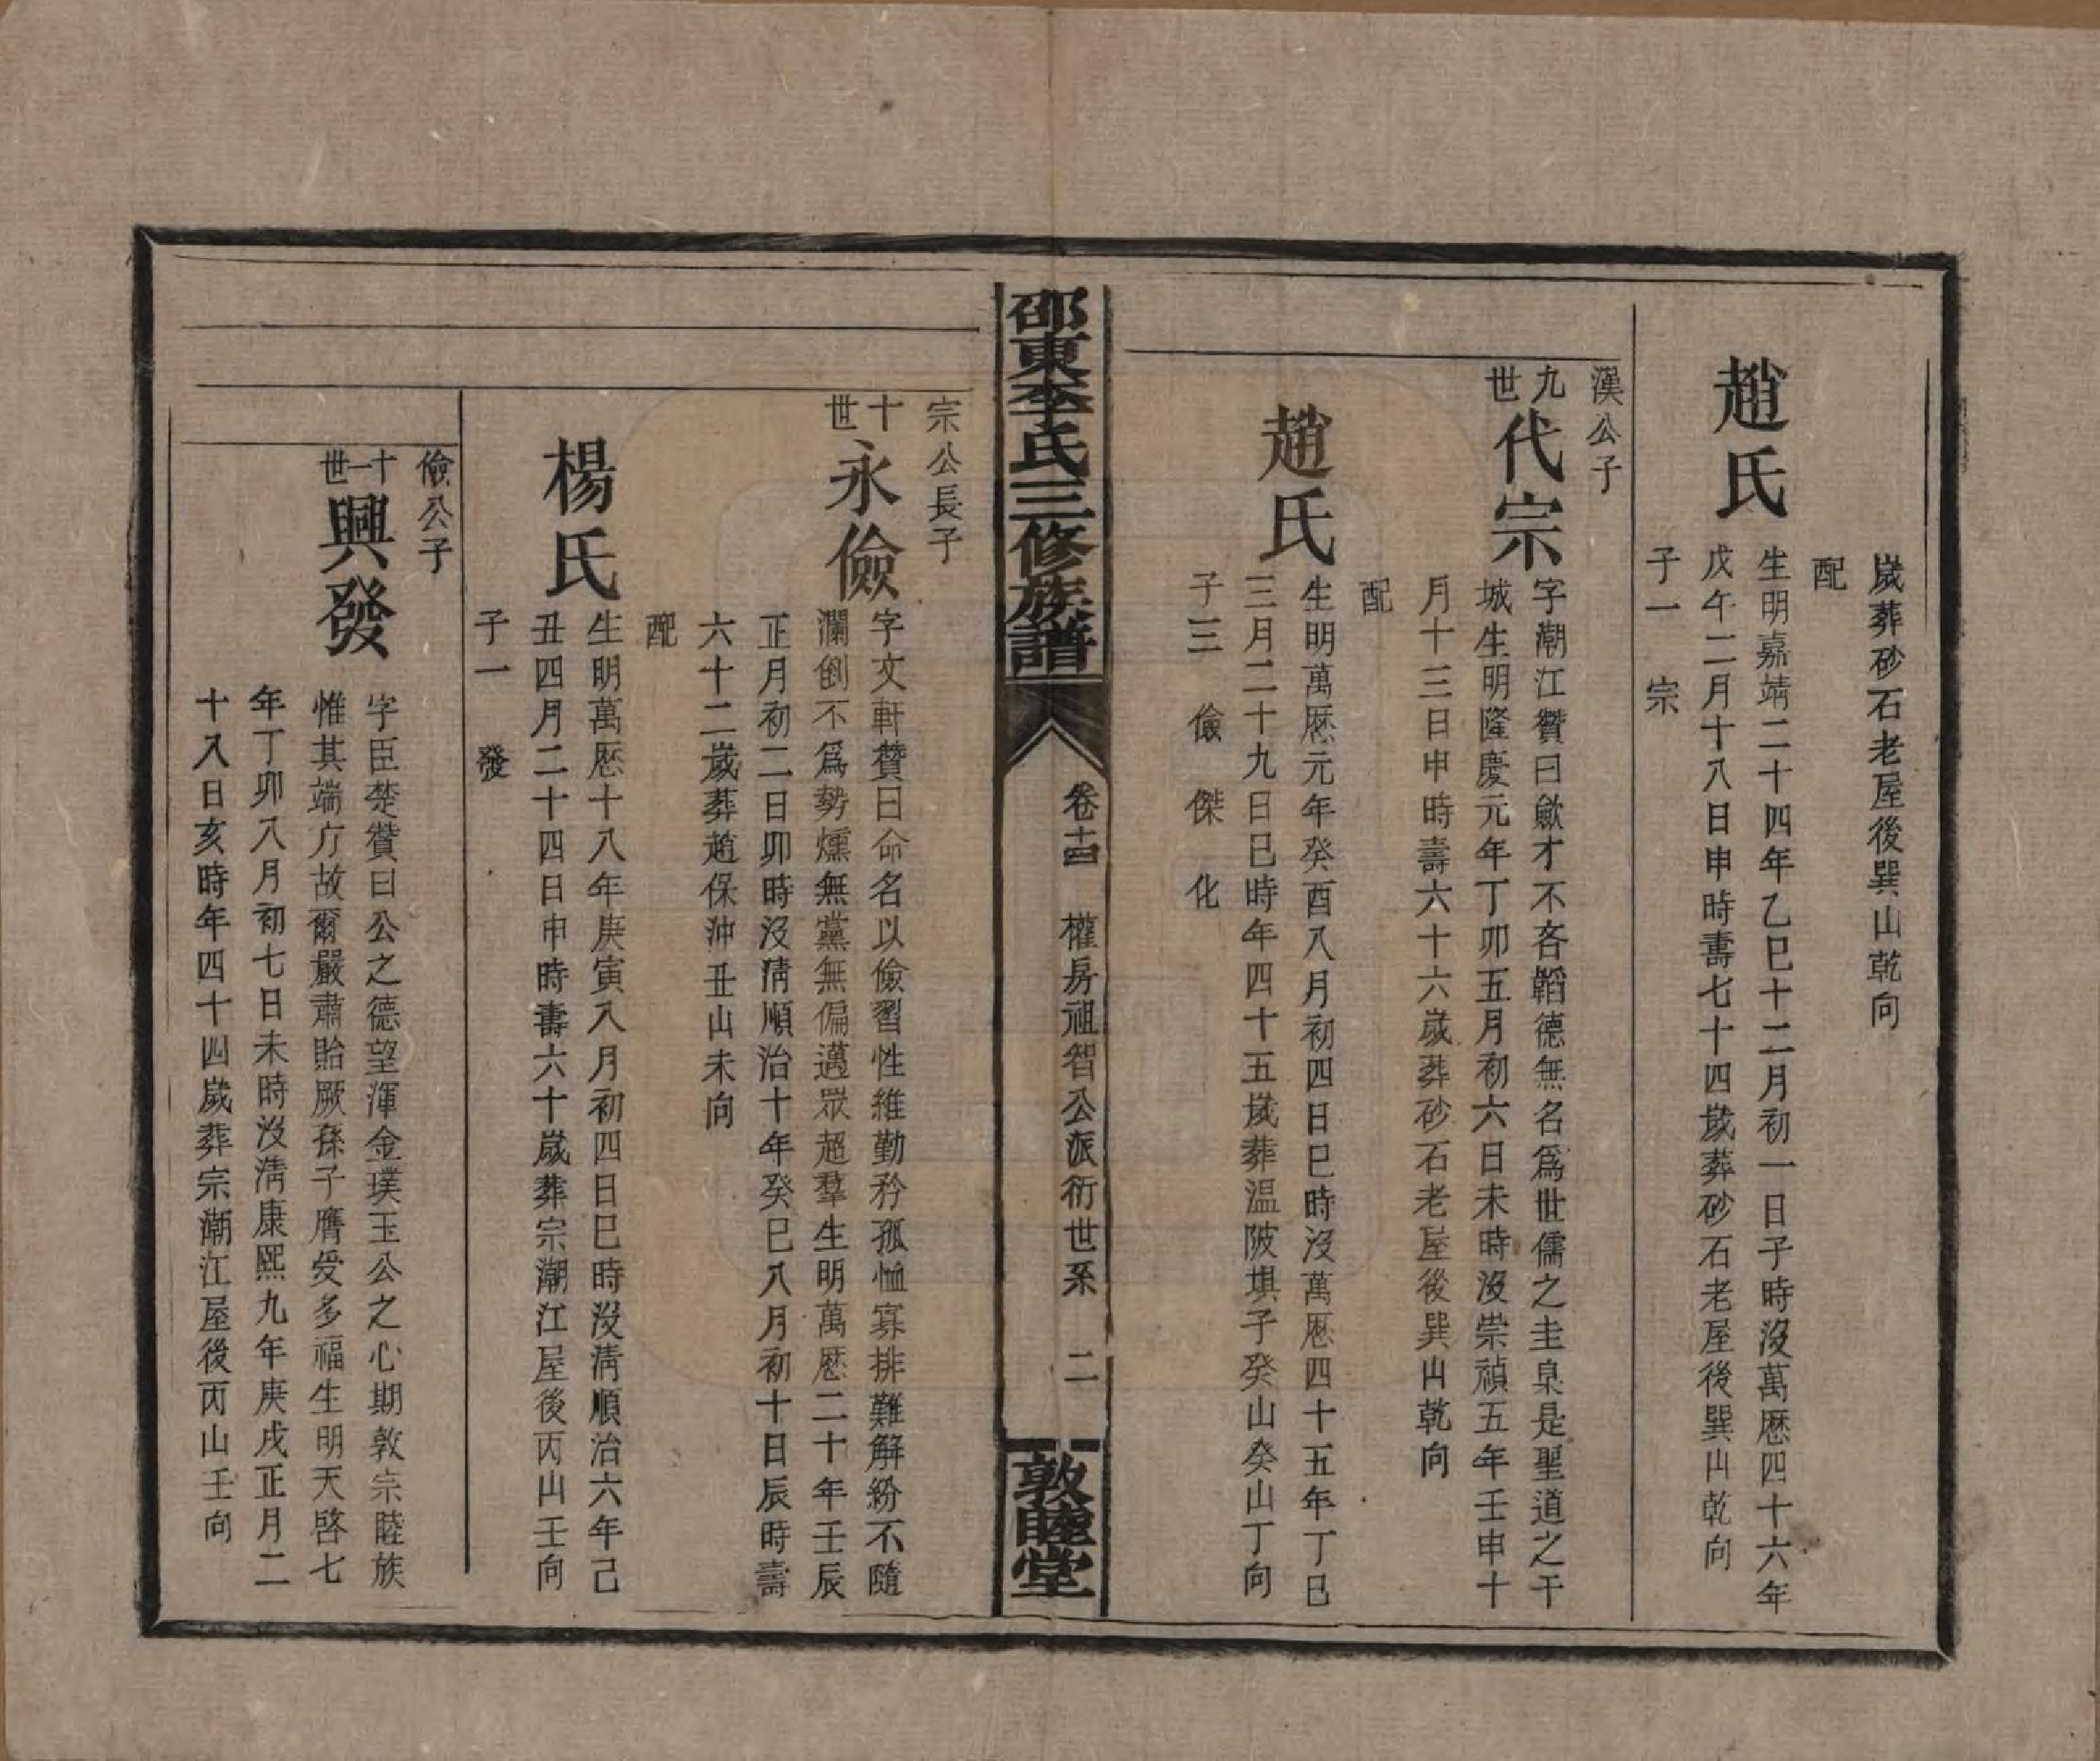 歲葬砂石老屋後巽山乾向
配
趙氏
生明嘉靖二十四年乙巳十二月初一日子時沒萬厯四十六年
戊午二月十八日申時壽七十四歲葬砂石老屋後巽山乾向
子一　宗
漢公子
九世
代宗
字潮江贊曰歛才不吝韜德無名爲世儒之圭臬是聖道之干
城生明隆慶元年丁卯五月初六日未時沒崇禎五年壬申十
月十三日申時壽六十六歲葬砂石老屋後巽山乾向
配
趙氏
生明萬厯元年癸酉八月初四日巳時沒萬厯四十五年丁巳
三月二十九日巳時年四十五歲葬温陂塤子癸山癸山丁向
子三　儉　傑　化
邵東李氏三修族譜
卷十四　權房祖智公派衍世系　二
敦睦堂
宗公長子
十世
永儉
字文軒贊曰命名以儉習性維勤矜孤恤寡排難解紛不隨
瀾倒不爲勢燻無黨無偏邁眾超羣生明萬厯二十年壬辰
正月初二日卯時沒清順治十年癸巳八月初十日辰時壽
六十二歲葬趙保沖丑山未向
配
楊氏
生明萬厯十八年庚寅八月初四日巳時沒清順治六年己
丑四月二十四日申時壽六十歲葬宗潮江屋後丙山壬向
子一　發
儉公子
十一世
興發
字臣楚贊曰公之德望渾金璞玉公之心期敦宗睦族
惟其端方故爾嚴肅貽厥孫子膺受多福生明天啓七
年丁卯八月初七日未時沒清康熙九年庚戌正月二
十八日亥時年四十四歲葬宗潮江屋後丙山壬向